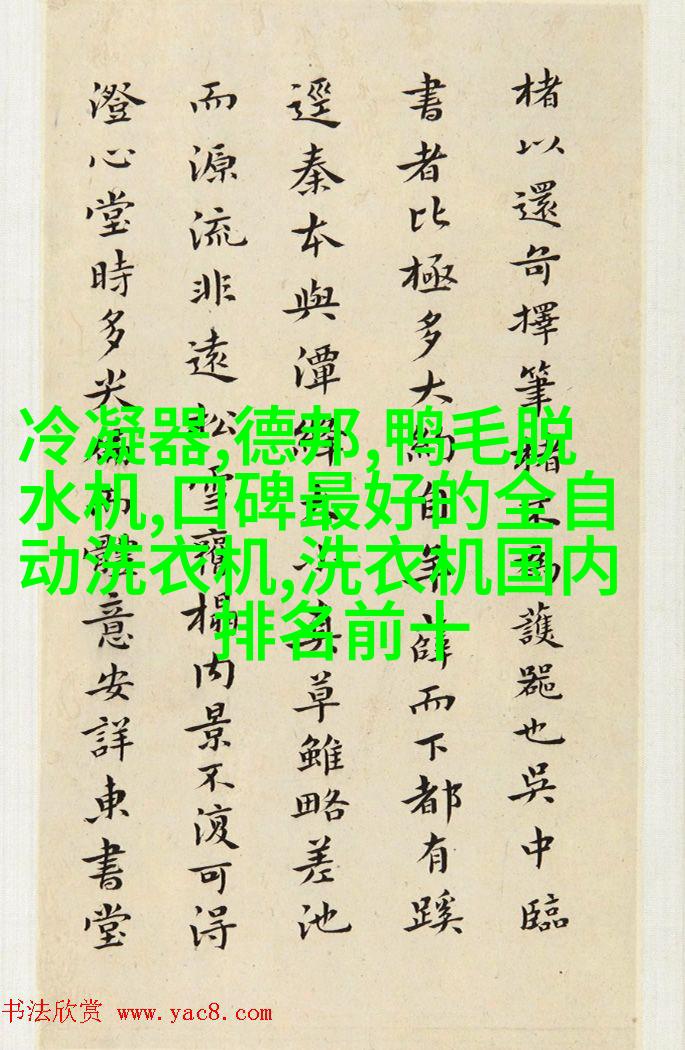 楮以還奇擇筆楮
書者比極多大約自
逕秦本與潭絳
而源流非遠松雪齋
澄心堂時多尖
為護器也吳中臨
薛而下都有蹊
真草雖略差池
榻内景不復可得
意安詳東書堂
冷凝器,德邦,鸭毛脱
水机,口碑最好的全自
动洗衣机,洗衣机国内
排名前十
书法欣赏 www.yac8.com